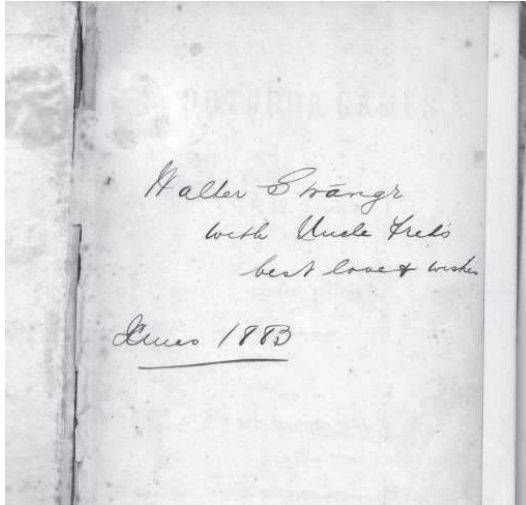 Walter Strange
with Uncle Fred's
best love & wishes
Xmas 1883